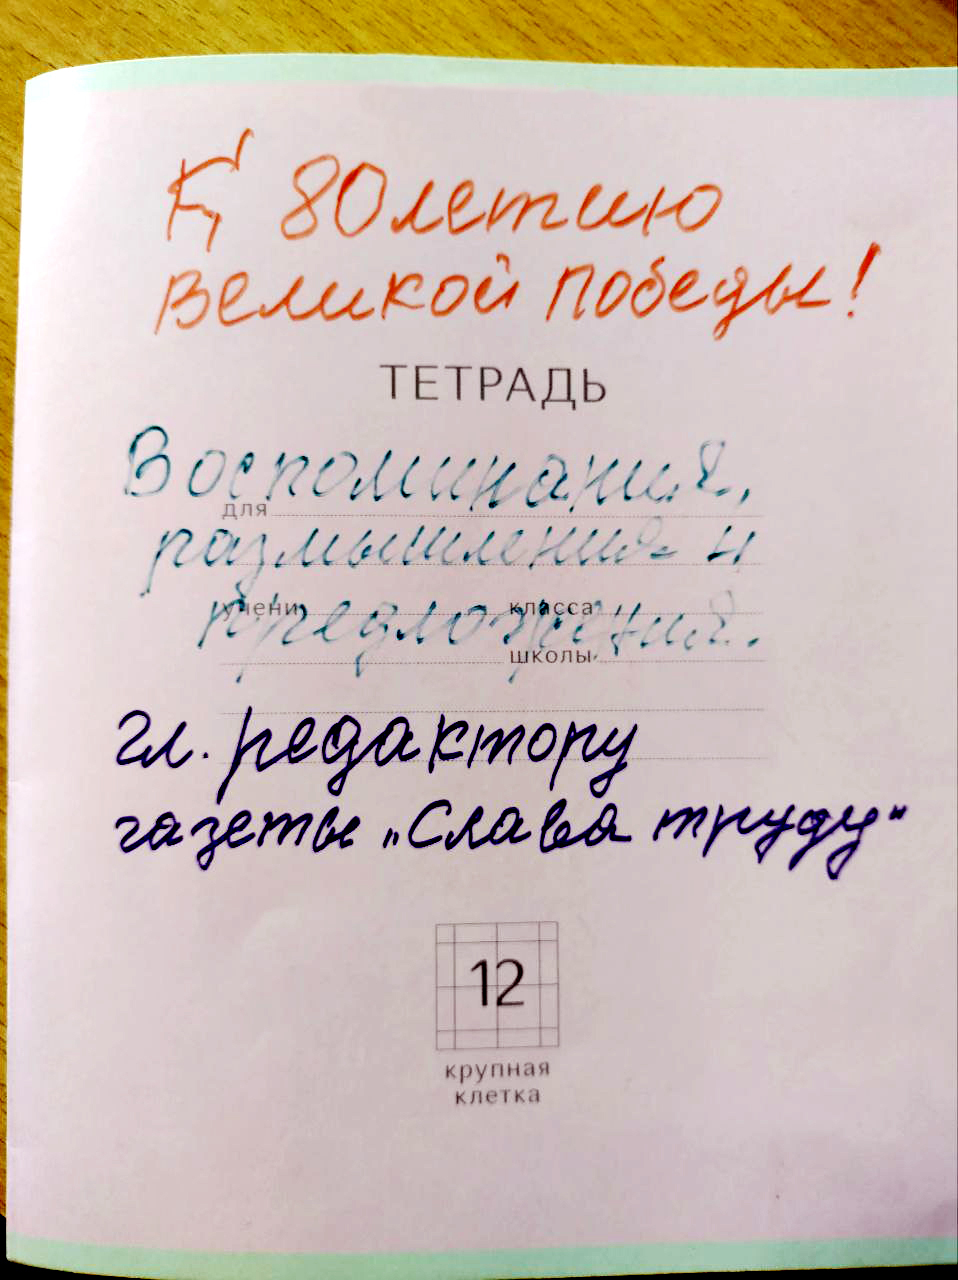 К 80летию
Великой Победы!
ТЕТРАДЬ
Воспоминания,
для
размышления и
учени класса
предложения.
школы
гл. редактору
газеты „Слава труду"
12
крупная
клетка